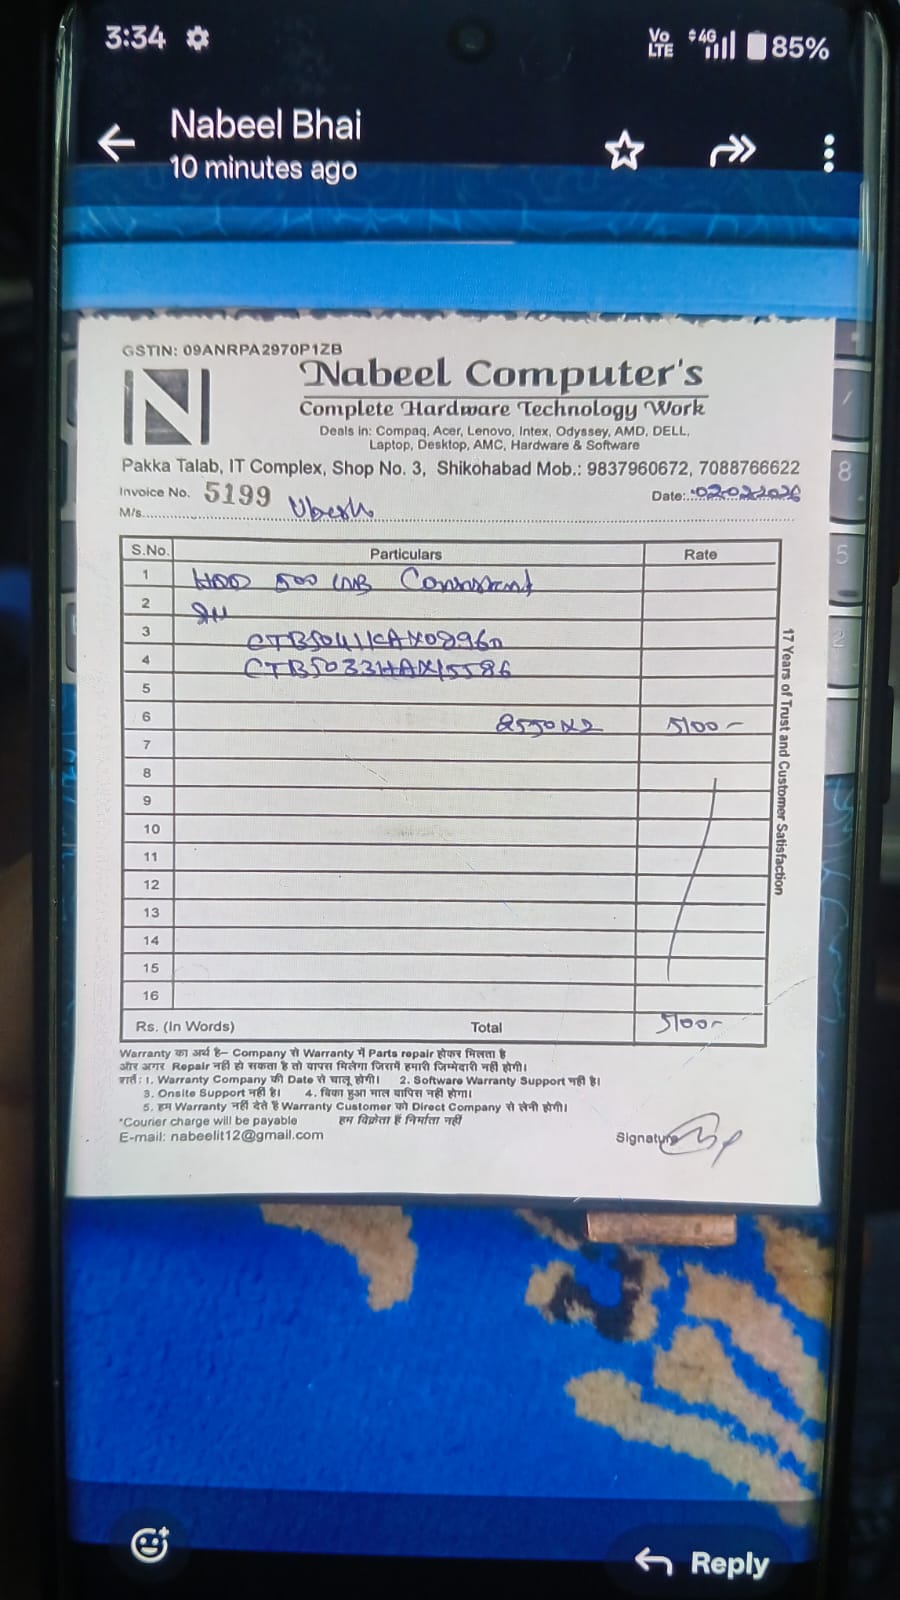 3:34
Vo LTE 4G 85%
Nabeel Bhai
10 minutes ago
GSTIN: 09ANRPA2970P1ZB
N
Nabeel Computer's
Complete Hardware Technology Work
Deals in: Compaq, Acer, Lenovo, Intex, Odyssey, AMD, DELL,
Laptop, Desktop, AMC, Hardware & Software
Pakka Talab, IT Complex, Shop No. 3, Shikohabad Mob.: 9837960672, 7088766622
Invoice No. 5199
Date: 02022026
M/s.
S.No. Particulars Rate
1 HDD 500 Consistent
2
3
4
5
6 2550x2 5100-
7
8
9
10
11
12
13
14
15
16
Rs. (In Words) Total 5100-
17 Years of Trust and Customer Satisfaction
Warranty का अर्थ है– Company से Warranty में Parts repair होकर मिलता है
और अगर Repair नहीं हो सकता है तो वापस मिलेगा जिसमें हमारी जिम्मेदारी नहीं होगी।
शर्तें: 1. Warranty Company की Date से चालू होगी। 2. Software Warranty Support नहीं है।
3. Onsite Support नहीं है। 4. बिका हुआ माल वापिस नहीं होगा।
5. हम Warranty नहीं देते हैं Warranty Customer को Direct Company से लेनी होगी।
*Courier charge will be payable हम विक्रेता हैं निर्माता नहीं
E-mail: nabeelit12@gmail.com
Signature
8
5
2
Reply